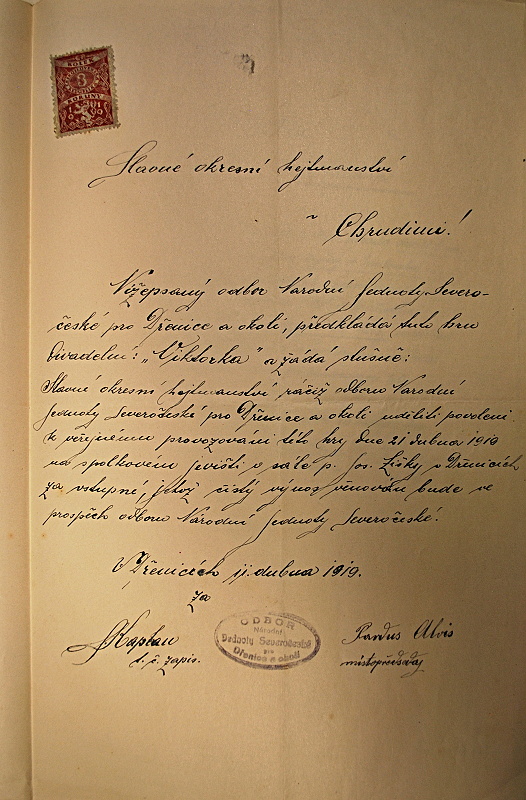 KOLEK
3
KORUNY
1919
Slavné okresní hejtmanství
v Chrudimi!
Nížepsaný odbor Národní Jednoty Severo-
české pro Dřenice a okolí, předkládá tuto hru
divadelní: „Viktorka" a žádá slušně:
Slavné okresní hejtmanství račiž odboru Národní
Jednoty Severočeské pro Dřenice a okolí uděliti povolení
k veřejnému provozování této hry dne 21 dubna 1919
na spolkovém jevišti v sále p. Jos. Žišky v Dřenicích
za vstupné, jehož čistý výnos věnován bude ve
prospěch odboru Národní Jednoty Severočeské.
V Dřenicích 11. dubna 1919.
za
Kaplan
t. č. zapis.
ODBOR
Národní
Jednoty Severočeské
pro
Dřenice a okolí
Pardus Alois
místopředseda